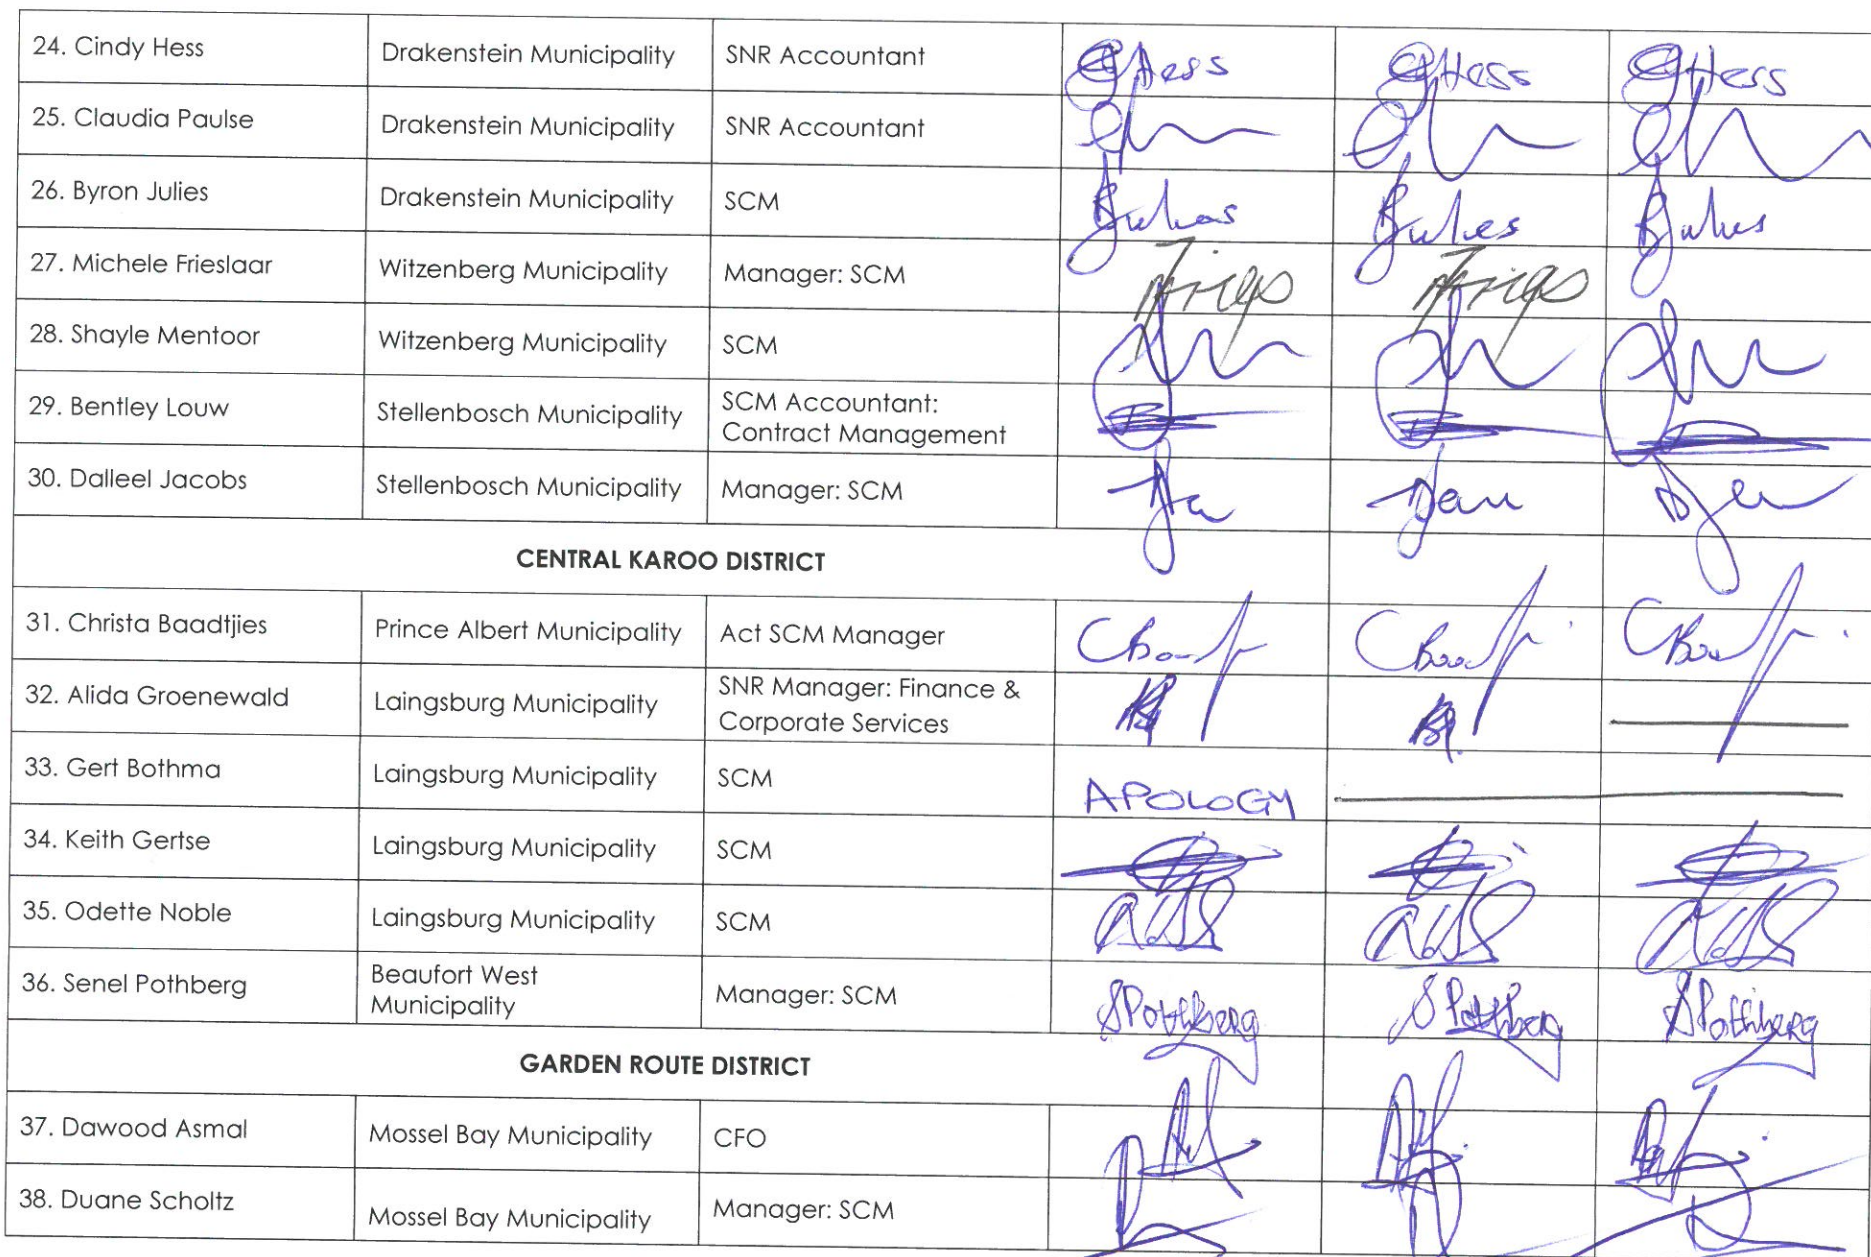 24. Cindy Hess Drakenstein Municipality SNR Accountant GHess GHess GHess
25. Claudia Paulse Drakenstein Municipality SNR Accountant
26. Byron Julies Drakenstein Municipality SCM BJulies BJulies BJulies
27. Michele Frieslaar Witzenberg Municipality Manager: SCM
28. Shayle Mentoor Witzenberg Municipality SCM
29. Bentley Louw Stellenbosch Municipality SCM Accountant:
Contract Management
30. Dalleel Jacobs Stellenbosch Municipality Manager: SCM
CENTRAL KAROO DISTRICT
31. Christa Baadtjies Prince Albert Municipality Act SCM Manager
32. Alida Groenewald Laingsburg Municipality SNR Manager: Finance &
Corporate Services
33. Gert Bothma Laingsburg Municipality SCM APOLOGY
34. Keith Gertse Laingsburg Municipality SCM
35. Odette Noble Laingsburg Municipality SCM
36. Senel Pothberg Beaufort West
Municipality Manager: SCM SPothberg SPothberg SPothberg
GARDEN ROUTE DISTRICT
37. Dawood Asmal Mossel Bay Municipality CFO
38. Duane Scholtz Mossel Bay Municipality Manager: SCM